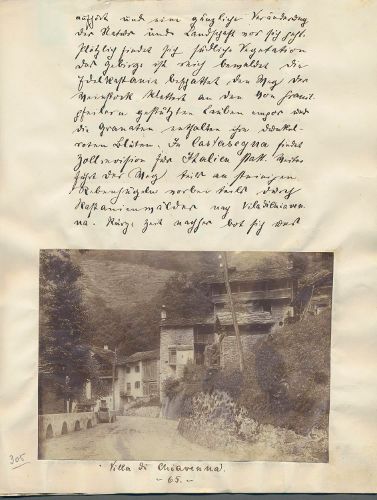 aufhört und eine gänzliche Veränderung
der Natur und Landschaft vor sich geht.
Plötzlich findet sich südliche Vegetation
das Gebirge ist reich bewaldet die
Edelkastanie beschattet den Weg der
Weinstock klettert an den von Granit-
pfeilern gestützten Lauben empor und
die Granaten enthalten ihre dunkel-
roten Blüten. In Castasegna findet
Zollrevision für Italien statt. Weiter
führt der Weg teils an steinigen
Rebenhügeln vorbei teils durch
Kastanienwälder nach Villa di Chiaven-
na. Kurze Zeit nachher bot sich uns
305
Villa di Chiavenna.
- 65. -